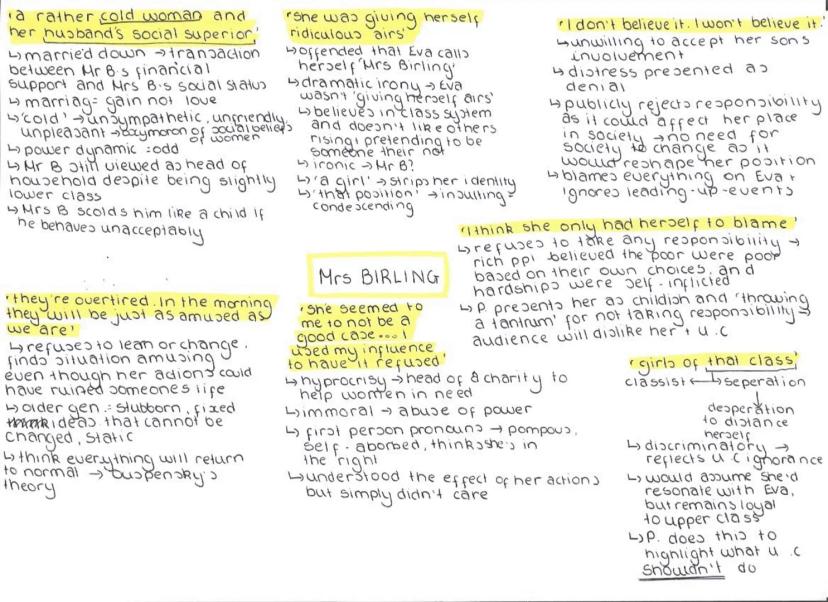 'a rather cold woman and
her husband's social superior'
↳married down → transaction
between Mr B's financial
support and Mrs B's social status
↳marriag= gain not love
↳'cold' → unsympathetic, unfriendly,
unpleasant → oxymoron of social beliefs
of women
↳power dynamic = odd
↳Mr B still viewed as head of
household despite being slightly
lower class
↳Mrs B scolds him like a child if
he behaves unacceptably
'she was giving herself
ridiculous airs'
↳offended that Eva calls
herself 'Mrs Birling'
↳dramatic irony → Eva
wasn't 'giving herself airs'
↳believes in class system
and doesn't like others
rising + pretending to be
someone their not
↳ironic → Mr B?
↳'a girl' → strips her identity
↳'that position' → insulting +
condescending
'I don't believe it. I won't believe it.'
↳unwilling to accept her sons
involvement
↳distress presented as
denial
↳publicly rejects responsibility
as it could affect her place
in society → no need for
society to change as it
would reshape her position
↳blames everything on Eva +
ignores leading-up-events
'I think she only had herself to blame'
↳refuses to take any responsibility →
rich ppl believed the poor were poor
based on their own choices, and
hardships were self-inflicted
↳P. presents her as childish and 'throwing
a tantrum' for not taking responsibility →
audience will dislike her + u.c
Mrs BIRLING
'they're overtired. In the morning
they will be just as amused as
we are'
↳refuses to lean or change.
finds situation amusing
even though her actions could
have ruined someones life
↳older gen. = stubborn, fixed
ideas that cannot be
changed, static
↳think everything will return
to normal → ouspensky's
theory
'She seemed to
me to not be a
good case... I
used my influence
to have it refused'
↳hyprocrisy → head of a charity to
help women in need
↳immoral → abuse of power
↳first person pronouns → pompous,
self-aborbed, thinks she's in
the right
↳understood the effect of her actions
but simply didn't care
'girls of that class'
classist ← → seperation
↓
desperation
to distance
herself
↳discriminatory →
reflects u.c ignorance
↳would assume she'd
resonate with Eva,
but remains loyal
to upper class
↳P. does this to
highlight what u.c
shouldn't do